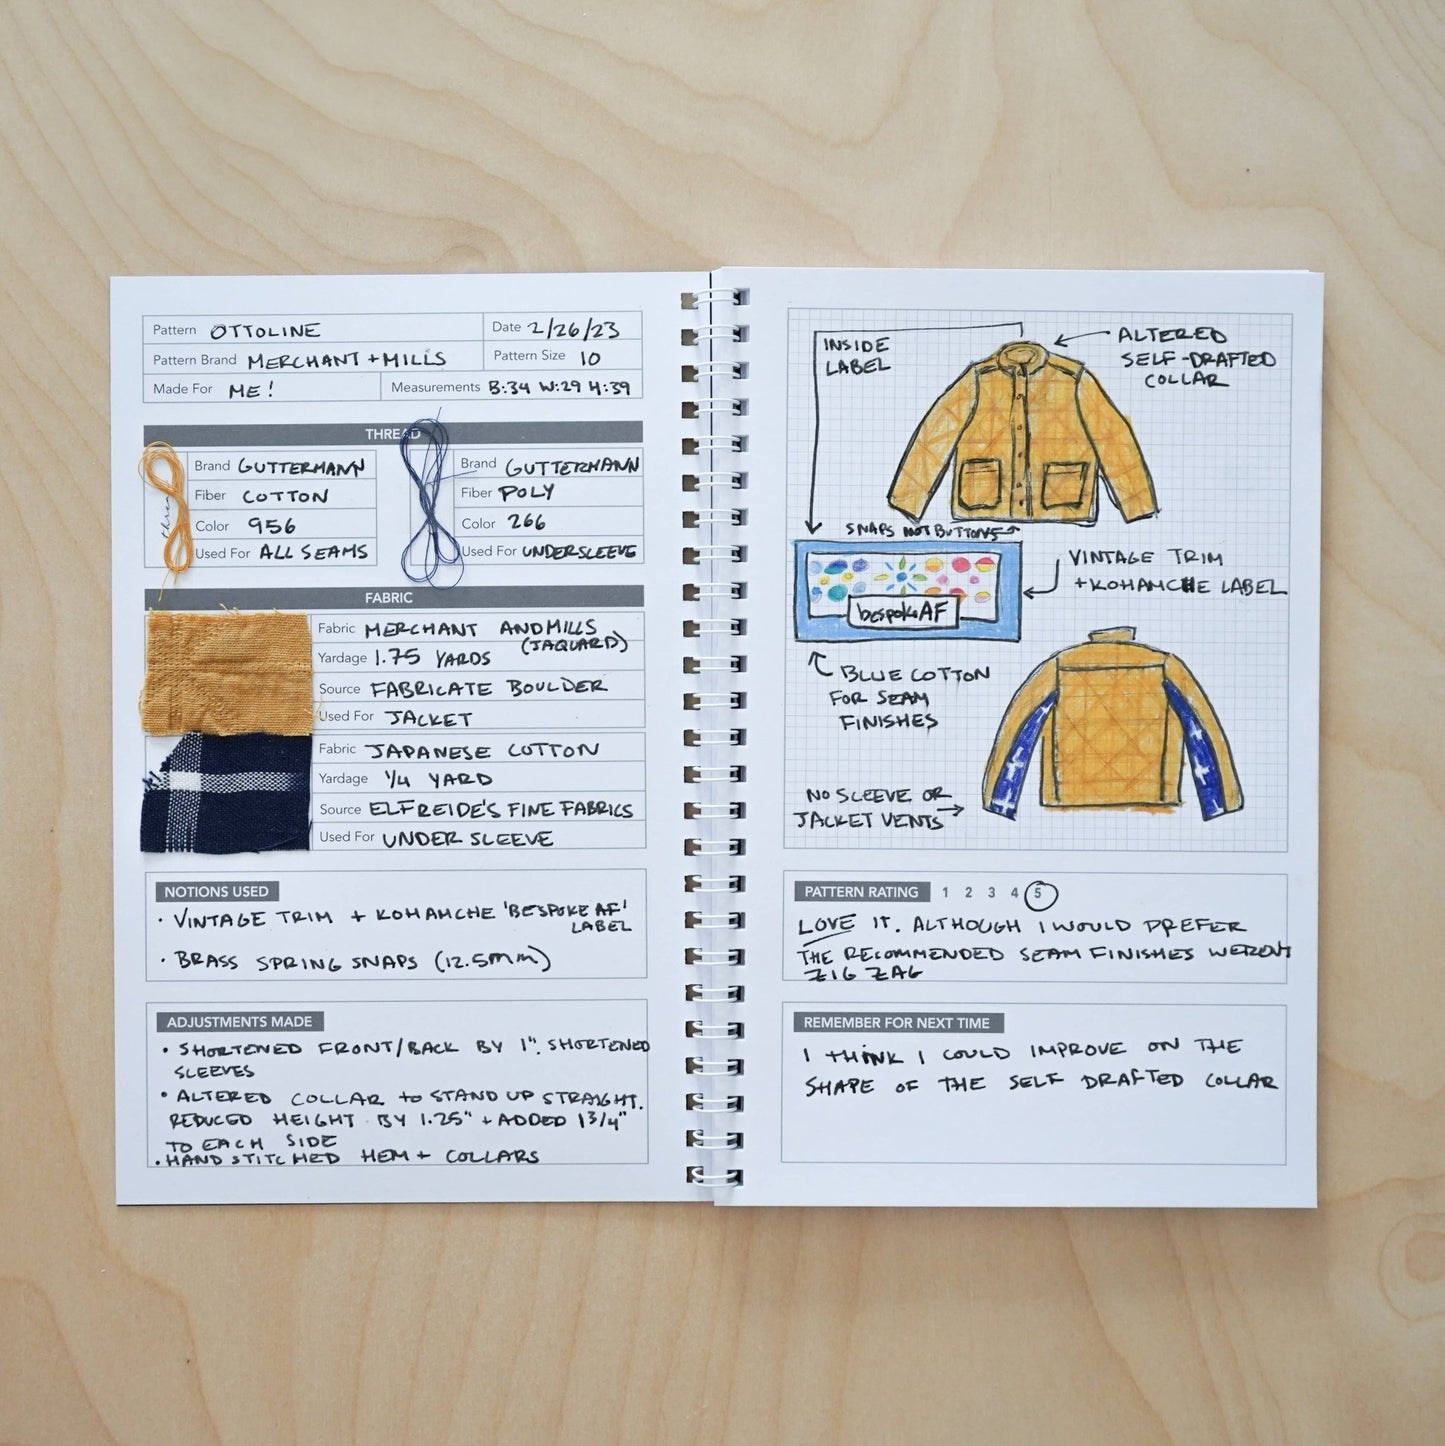 Pattern OTTOLINE Date 2/26/23
Pattern Brand MERCHANT + MILLS Pattern Size 10
Made For ME! Measurements B:34 W:29 H:39
THREAD
Brand GUTTERMANN
Fiber COTTON
Color 956
Used For ALL SEAMS
Brand GUTTERMANN
Fiber POLY
Color 266
Used For UNDERSLEEVE
FABRIC
Fabric MERCHANT AND MILLS
(JAQUARD)
Yardage 1.75 YARDS
Source FABRICATE BOULDER
Used For JACKET
Fabric JAPANESE COTTON
Yardage 1/4 YARD
Source ELFREIDE'S FINE FABRICS
Used For UNDER SLEEVE
NOTIONS USED
• VINTAGE TRIM + KOHAMCHE 'BESPOKE AF'
LABEL
• BRASS SPRING SNAPS (12.5mm)
ADJUSTMENTS MADE
• SHORTENED FRONT/BACK BY 1". SHORTENED
SLEEVES
• ALTERED COLLAR to STAND UP STRAIGHT.
REDUCED HEIGHT BY 1.25" + ADDED 1 3/4"
TO EACH SIDE
• HAND STITCHED HEM + COLLARS
INSIDE
LABEL
ALTERED
SELF-DRAFTED
COLLAR
SNAPS NOT BUTTONS
bespoke AF
VINTAGE TRIM
+ KOHAMCHE LABEL
BLUE COTTON
FOR SEAM
FINISHES
NO SLEEVE OR
JACKET VENTS
PATTERN RATING 1 2 3 4 5
LOVE IT. ALTHOUGH I WOULD PREFER
THE RECOMMENDED SEAM FINISHES WEREN'T
ZIG ZAG
REMEMBER FOR NEXT TIME
I THINK I COULD IMPROVE ON THE
SHAPE OF THE SELF DRAFTED COLLAR